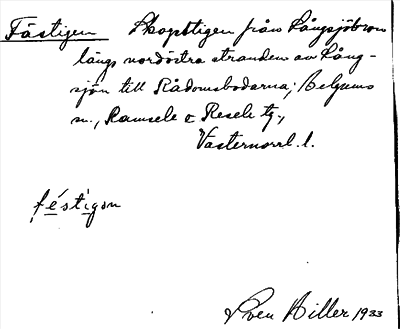 Fästigen Skogsstigen från Långsjöbron
längs nordöstra stranden av Lång-
sjön till Rådomsbodarna; Helgums
sn., Ramsele o Resele tg.,
Västernorrl. l.
féstigən
Sven Hiller 1933